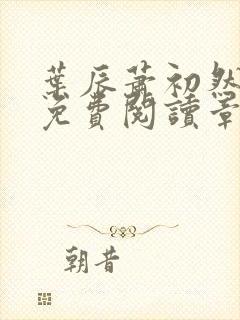 葉辰蕭初然
免費閱讀章
朝昔